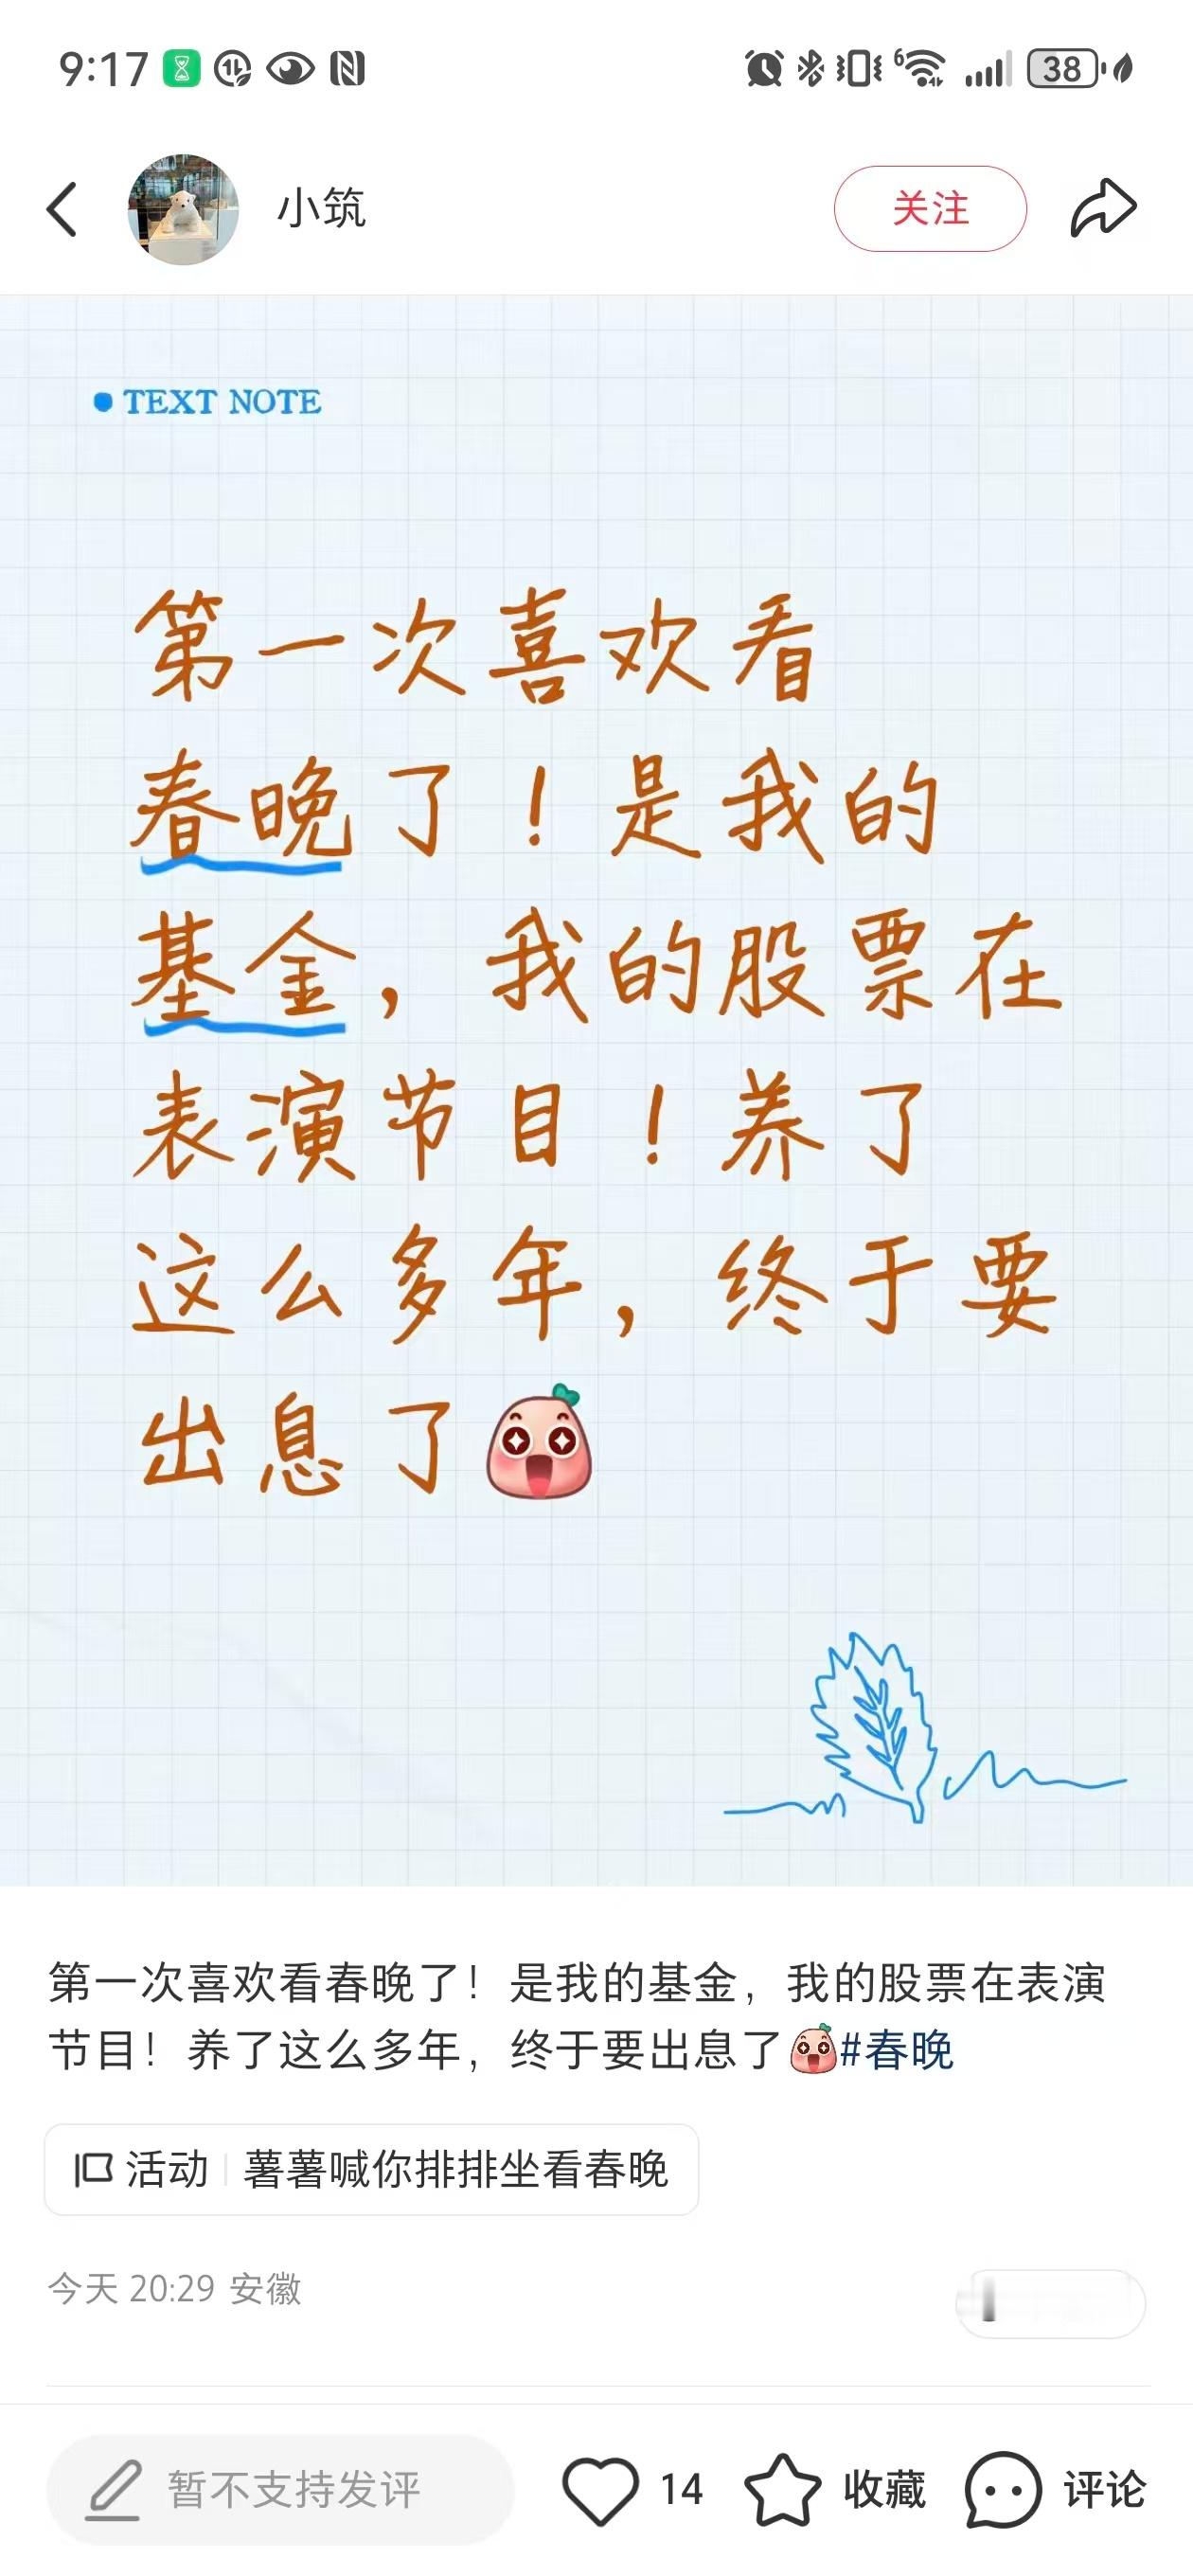 9:17
6
38
小筑
关注
TEXT NOTE
第一次喜欢看
春晚了！是我的
基金，我的股票在
表演节目！养了
这么多年，终于要
出息了
第一次喜欢看春晚了！是我的基金，我的股票在表演
节目！养了这么多年，终于要出息了#春晚
活动 薯薯喊你排排坐看春晚
今天 20:29 安徽
暂不支持发评
14
收藏
评论